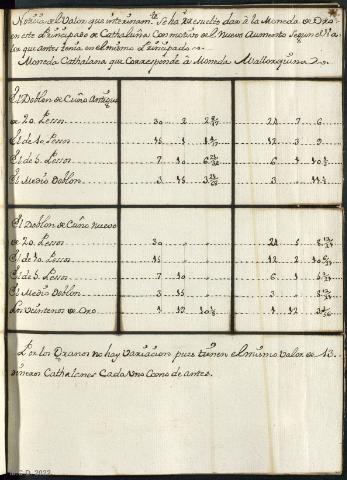 Noticia del Valor que interinam.te se ha resuelto dar à la Moneda de Oro
en este Principado de Cathaluña Con motivo de el Nuevo Aumento Segun el Va-
lor que antes tenia en el mismo Principado.
Moneda Cathalana que Corresponde à Moneda Mallorquina
El Doblon de Cuño Antiguo
de 20. Pesos 30 2 24 7 6
El de 10. Pesos 15 1 12 3 9
El de 5. Pesos 7 10 6 6 1 10
El Medio Doblon 3 15 3 3
El Doblon de Cuño Nuevo
de 20. Pesos 30 " " 24 5 8
El de 10. Pesos 15 " " 12 2 10
El de 5. Pesos 7 10 " 6 1 5
El Medio Doblon 3 15 " 3 " 8
Los Veintenes de Oro 1 19 10 1 12 3
Por los Ocanos no hay Variacion pues tienen el mismo Valor de 13.
dineros Cathalanes Cada Uno Como de antes.